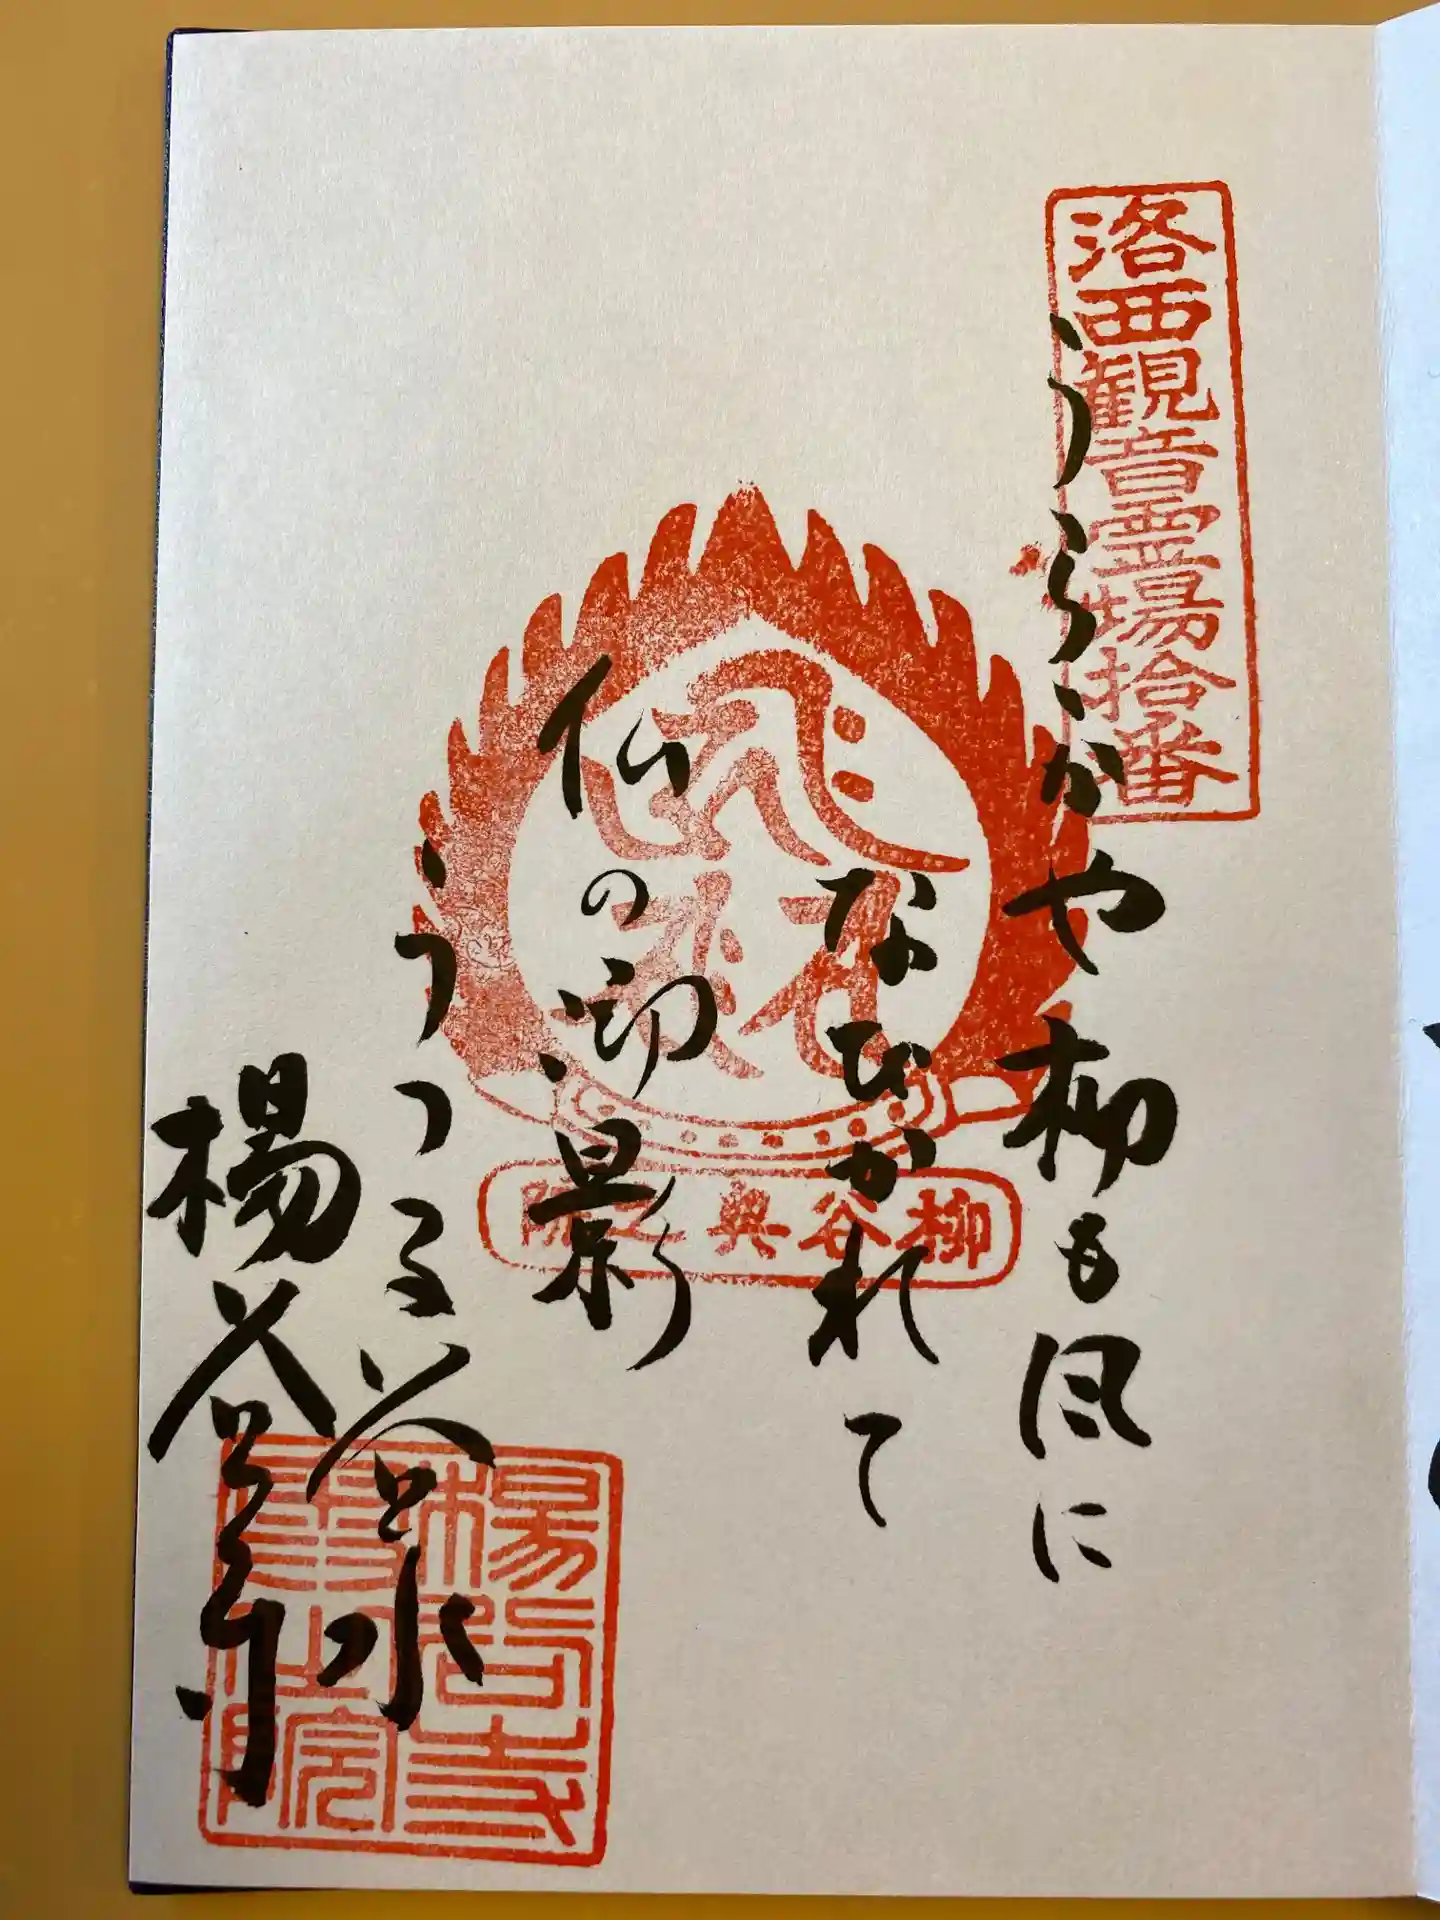 洛西観音霊場拾番
うららかや柳も風に
なびかれて
仙の御影
うつる谷水
楊谷寺
柳谷奥之院
楊谷寺